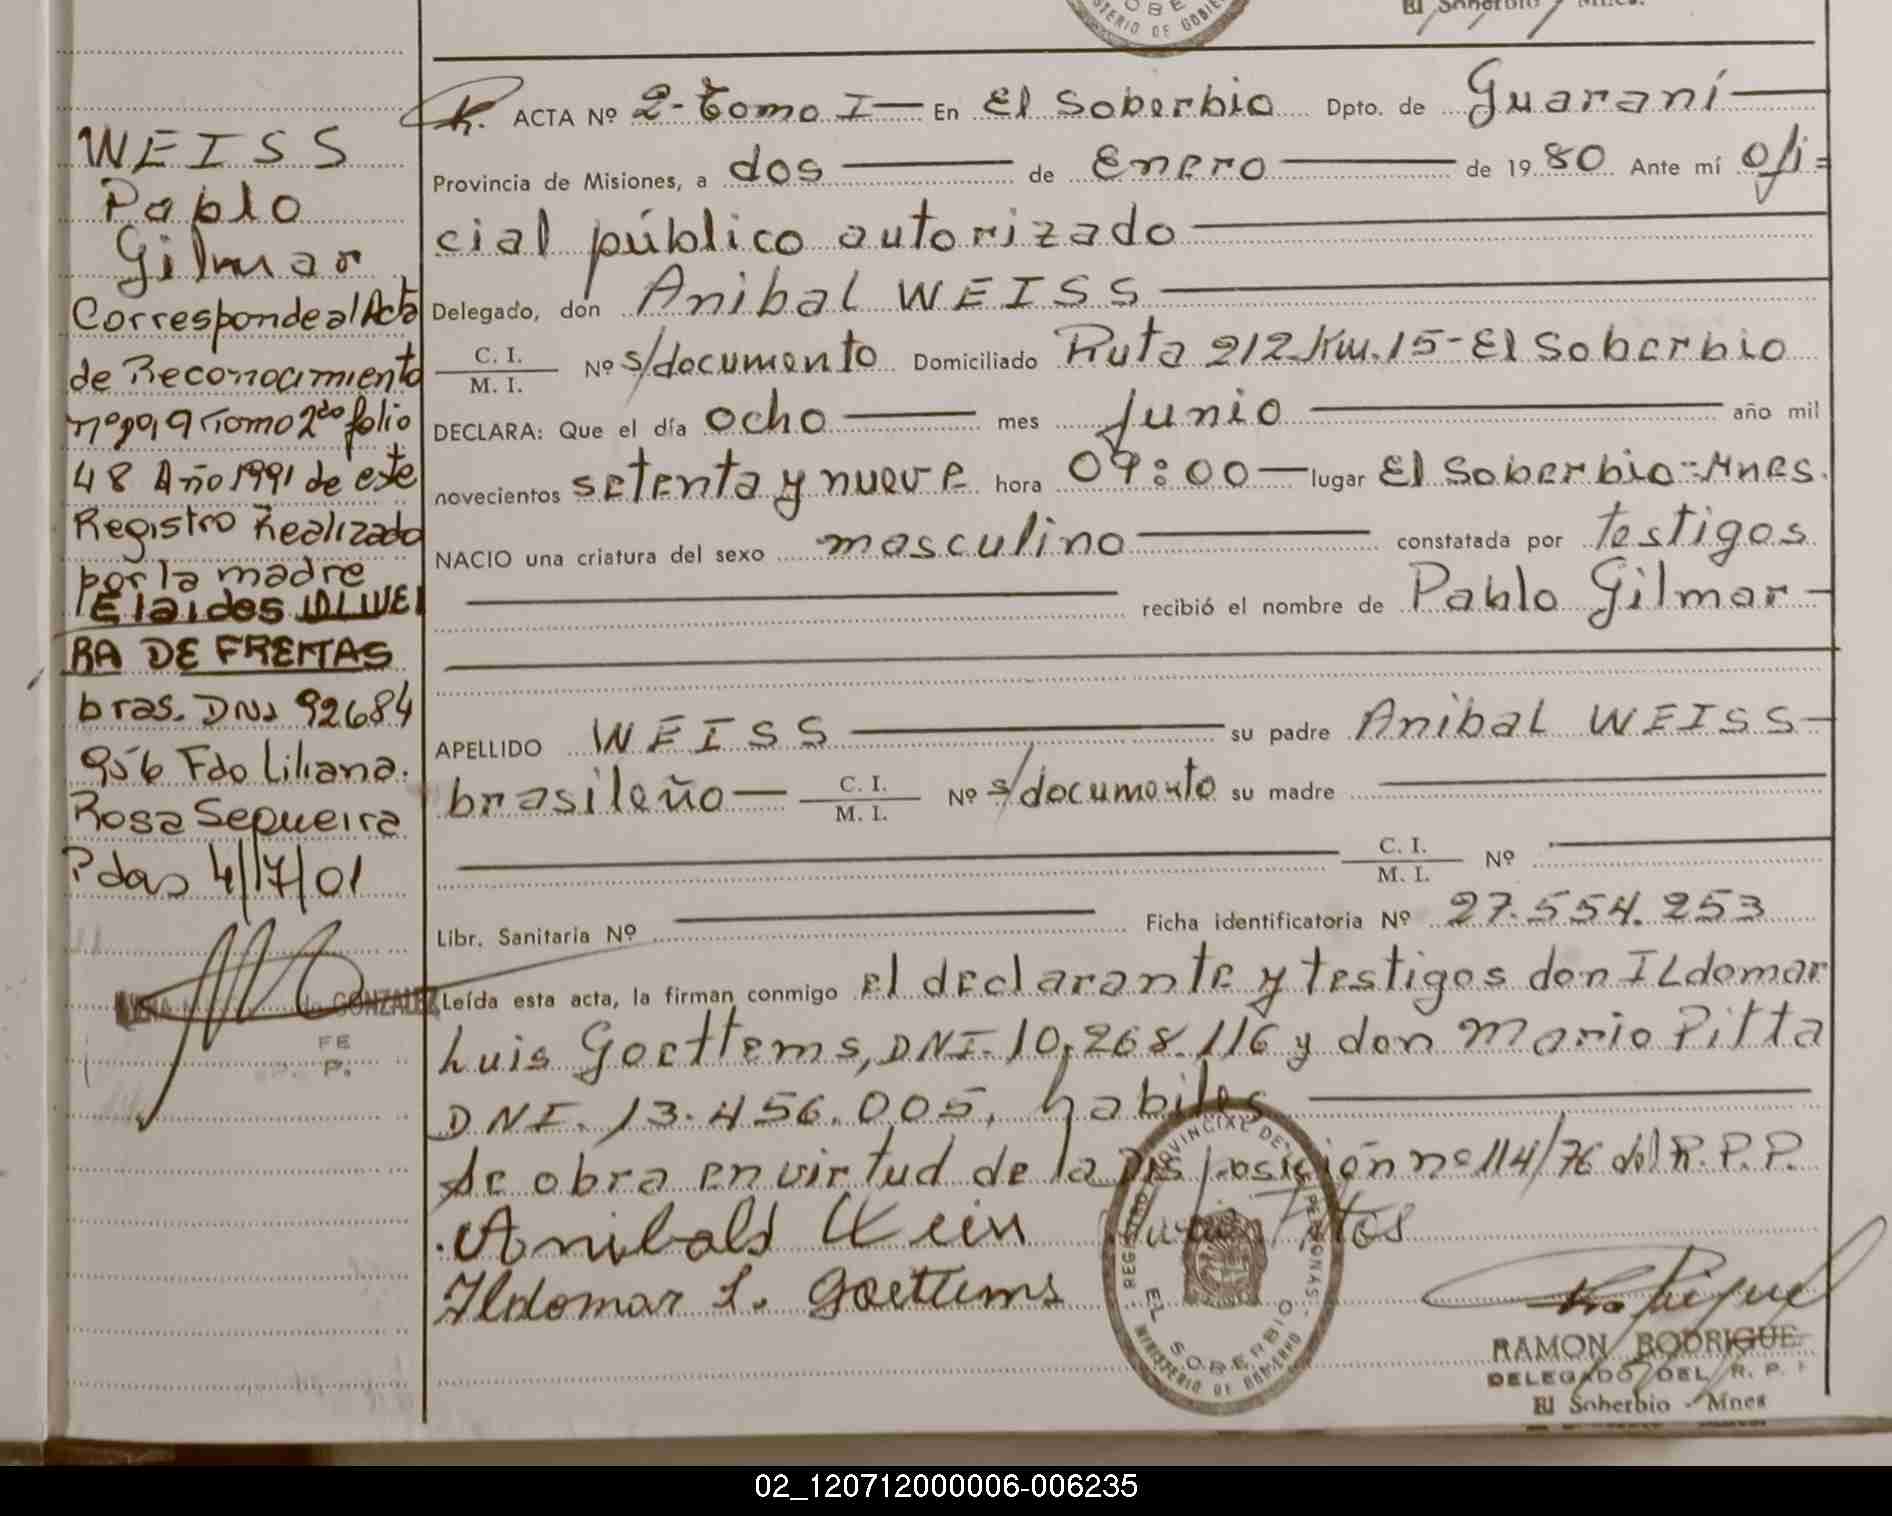 El Soberbio Mnes.
SOBE
STERIO DE GOBIE
ACTA Nº 2- Tomo I En El Soberbio Dpto. de Guaraní
Provincia de Misiones, a dos de Enero de 1980 Ante mí ofi=
cial público autorizado
Delegado, don Anibal WEISS
C. I.
M. I.
Nº s/documento Domiciliado Ruta 212 Km. 15-El Soberbio
DECLARA: Que el día ocho mes Junio año mil
novecientos setenta y nueve hora 09:00 lugar El Soberbio-Mnes.
NACIO una criatura del sexo masculino constatada por testigos
recibió el nombre de Pablo Gilmar
APELLIDO WEISS su padre Anibal WEISS
brasileño C. I. Nº s/documento su madre
M. I.
C. I. Nº
M. I.
Libr. Sanitaria Nº Ficha identificatoria Nº 27.554.253
Leída esta acta, la firman conmigo el declarante y testigos don ILdomar
Luis Goettems, DNI. 10.268.116 y don Mario Pitta
DNI. 13.456.005, habiles
Se obra en virtud de la Disposición nº 114/76 del R.P.P.
Anibald Wein
Ildomar L. Goettems
REGISTRO PROVINCIAL DE LAS PERSONAS
EL SOBERBIO
MINISTERIO DE GOBIERNO
RAMON RODRIGUE
DELEGADO DEL R. P.
El Soberbio - Mnes
WEISS
Pablo
Gilmar
Corresponde al Acta
de Reconocimiento
Tomo 2do folio
48 Año 1991 de este
Registro Realizado
por la madre
Elaides OLIVEI
RA DE FREITAS
bras. DNI 92684
956 Fdo Liliana.
Rosa Sequeira
Pdas 4/7/01
de GONZALEZ
FE
P.
02_120712000006-006235